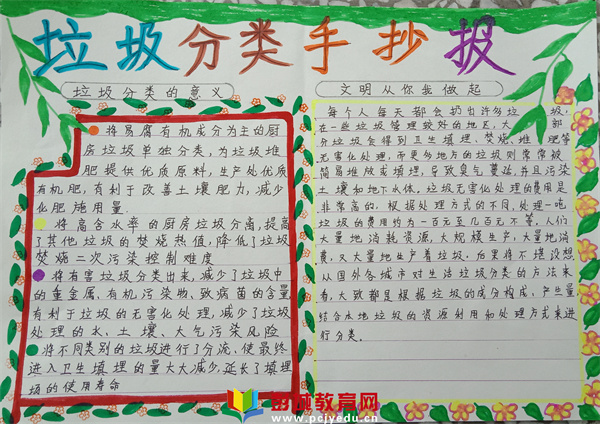 垃圾分类手抄报
垃圾分类的意义
将易腐有机成分为主的厨
房垃圾单独分类,为垃圾堆
肥提供优质原料,生产处优质
有机肥,有利于改善土壤肥力,减少
化肥施用量.
将高含水率的厨房垃圾分离,提高
了其他垃圾的焚烧热值,降低了垃圾
焚烧二次污染控制难度
将有害垃圾分类出来,减少了垃圾中
的重金属、有机污染物、致病菌的含量,
有利于垃圾的无害化处理,减少了垃圾
处理的水、土壤、大气污染风险
将不同类别的垃圾进行了分流,使最终
进入卫生填埋的量大大减少,延长了填埋
场的使用寿命
文明从你我做起
每个人每天都会扔出许多垃圾,
在一些垃圾管理较好的地区,大部
分垃圾会得到卫生填埋、焚烧、堆肥等
无害化处理,而更多地方的垃圾则常常被
简易堆放或填埋,导致臭气蔓延,并且污染
土壤和地下水体.垃圾无害化处理的费用是
非常高的,根据处理方式的不同,处理一吨
垃圾的费用约为一百元至几百元不等.人们
大量地消耗资源,大规模生产,大量地消
费,又大量地生产着垃圾.后果将不堪设想
从国外各城市对生活垃圾分类的方法来
看,大致都是根据垃圾的成分构成、产生量
结合本地垃圾的资源利用和处理方式来进
行分类.
教育网
www.pcjyedu.cn